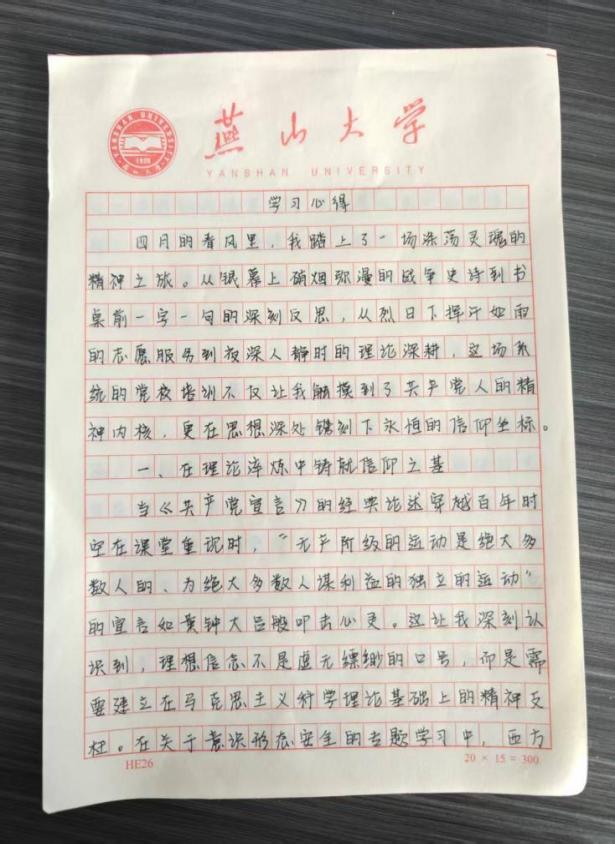 燕山大学
YANSHAN UNIVERSITY
学习心得
四月的春风里，我踏上了一场涤荡灵魂的
精神之旅。从银幕上硝烟弥漫的战争史诗到书
桌前一字一句的深刻反思，从烈日下挥汗如雨
的志愿服务到夜深人静时的理论深耕，这场系
统的党校培训不仅让我触摸到了共产党人的精
神内核，更在思想深处镌刻下永恒的信仰坐标。
一、在理论淬炼中铸就信仰之基
当《共产党宣言》的经典论述穿越百年时
空在课堂重现时，“无产阶级的运动是绝大多
数人的、为绝大多数人谋利益的独立的运动”
的宣言如黄钟大吕般叩击心灵。这让我深刻认
识到，理想信念不是虚无缥缈的口号，而是需
要建立在马克思主义科学理论基础上的精神支
柱。在关于意识形态安全的专题学习中，西方
HE26
20 × 15 = 300